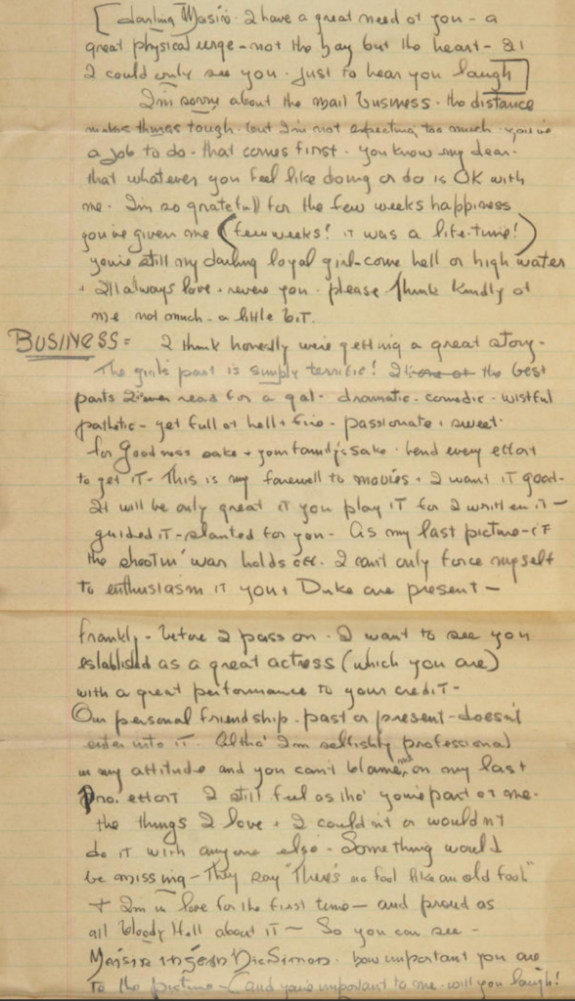 [darling] Maisin. I have a great need of you - a
great physical urge - not the hay but the heart - & if
I could only see you - just to hear you laugh]
I'm sorry about the mail business - the distance
makes things tough - but I'm not expecting too much - you've
a job to do - that comes first - you know my dear -
that whatever you feel like doing or do is OK with
me. I'm so gratefull for the few weeks happiness
you've given me (few weeks! it was a life-time!)
you're still my darling loyal girl - come hell or high water
I'll always love + revere you - please think kindly of
me not much - a little bit.
BUSINESS = I think honestly we're getting a great story -
The girl's part is simply terrific! the best
parts I ever read for a gal - dramatic - comedic - wistful
pathetic - yet full of hell + fire - passionate + sweet -
for Goodness sake + your family's sake - bend every effort
to get it - This is my farewell to movies + I want it good -
It will be only great if you play IT for I written it -
guided it - slanted for you - As my last picture - if
the shootin' war holds off - I can't only force myself
to enthusiasm if you + Duke are present -
frankly - before I pass on - I want to see you
established as a great actress (which you are)
with a great performance to your credit -
Our personal friendship - past or present - doesn't
enter into it. Altho' I'm selfishly professional
in my attitude and you can't blame me, on my last
pro. effort I still feel as tho' you're part of me -
the things I love + I couldn't or wouldn't
do it with anyone else - Something would
be missing - They say "There's no fool like an old fool"
+ I'm in love for the first time - and proud as
all bloody Hell about it - So you can see -
how important you are
to the picture - (and you're important to me - will you laugh!